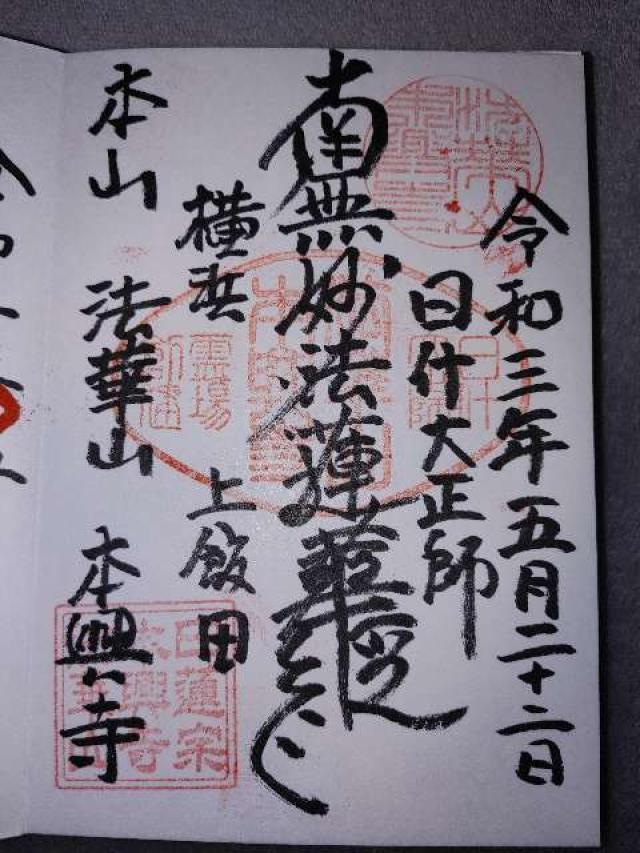 令和三年五月二十二日
日什大正師
南無妙法蓮華経
横浜
上飯田
本山 法華山 本興寺
霊場
日蓮宗
本興寺